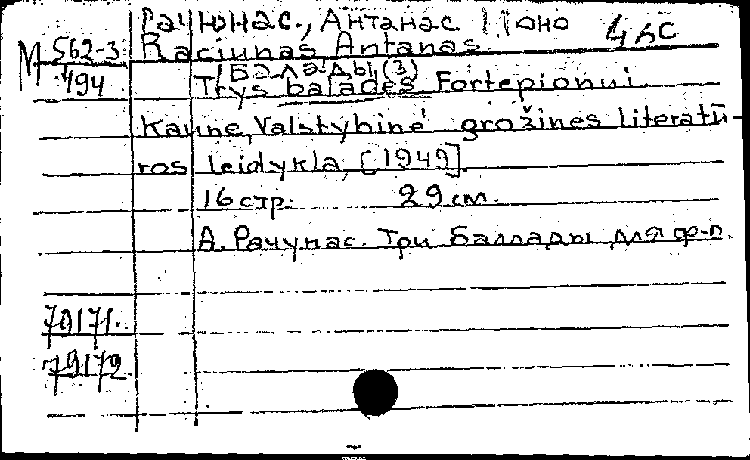 Рачюнас., Антанас Ионо 4 ЛС
М 562-3 Raciunas Antanas
494 /Баллады (3)
Trys balades Fortepionui
Kaune, Valstybinė grožines literatū-
ros leidykla, [1949].
16 стр. 29 см.
А. Рачунас. Три Баллады для ф-п.
79171.
79172